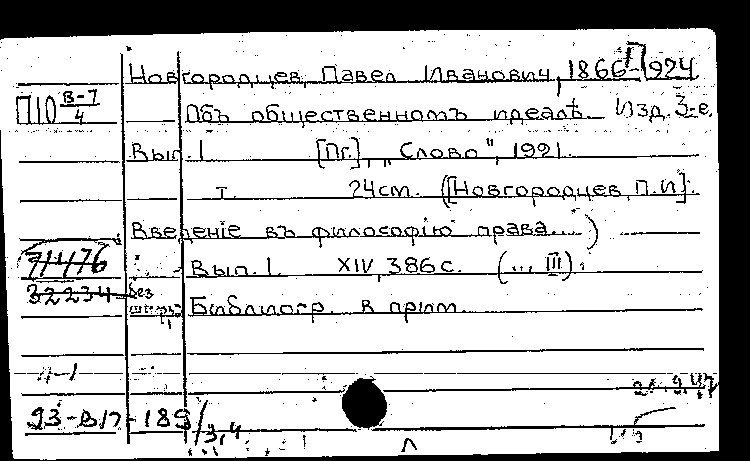 Новгородцев, Павел Иванович, 1866-1924
П10 В-7/4
Объ общественномъ идеалѣ. Изд. 3-е.
Вып. 1 [Пг.], „Слово", 1921.
т. 24см. ([Новгородцев, П.И].
Введеніе въ философію права...)
71476
Вып. 1. XIV, 386 с. (... III).
32234 без
Библиогр. в прим.
4-1
93-В17-189/3,4